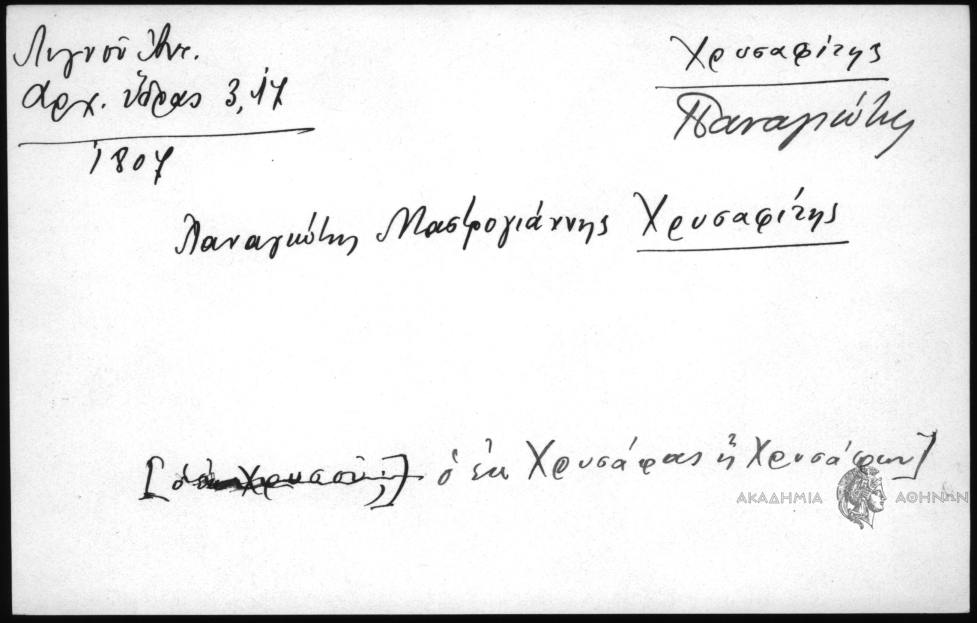 Λιγνοῦ Ἀντ.
Ἀρχ. Ὕδρας 3, 17
1807
Χρυσαφίτης
Παναγιώτης
Παναγιώτης Μαστρογιάννης Χρυσαφίτης
[ὁ ἐκ Χρυσάφας ἢ Χρυσάφων]
ΑΚΑΔΗΜΙΑ ΑΘΗΝΩΝ